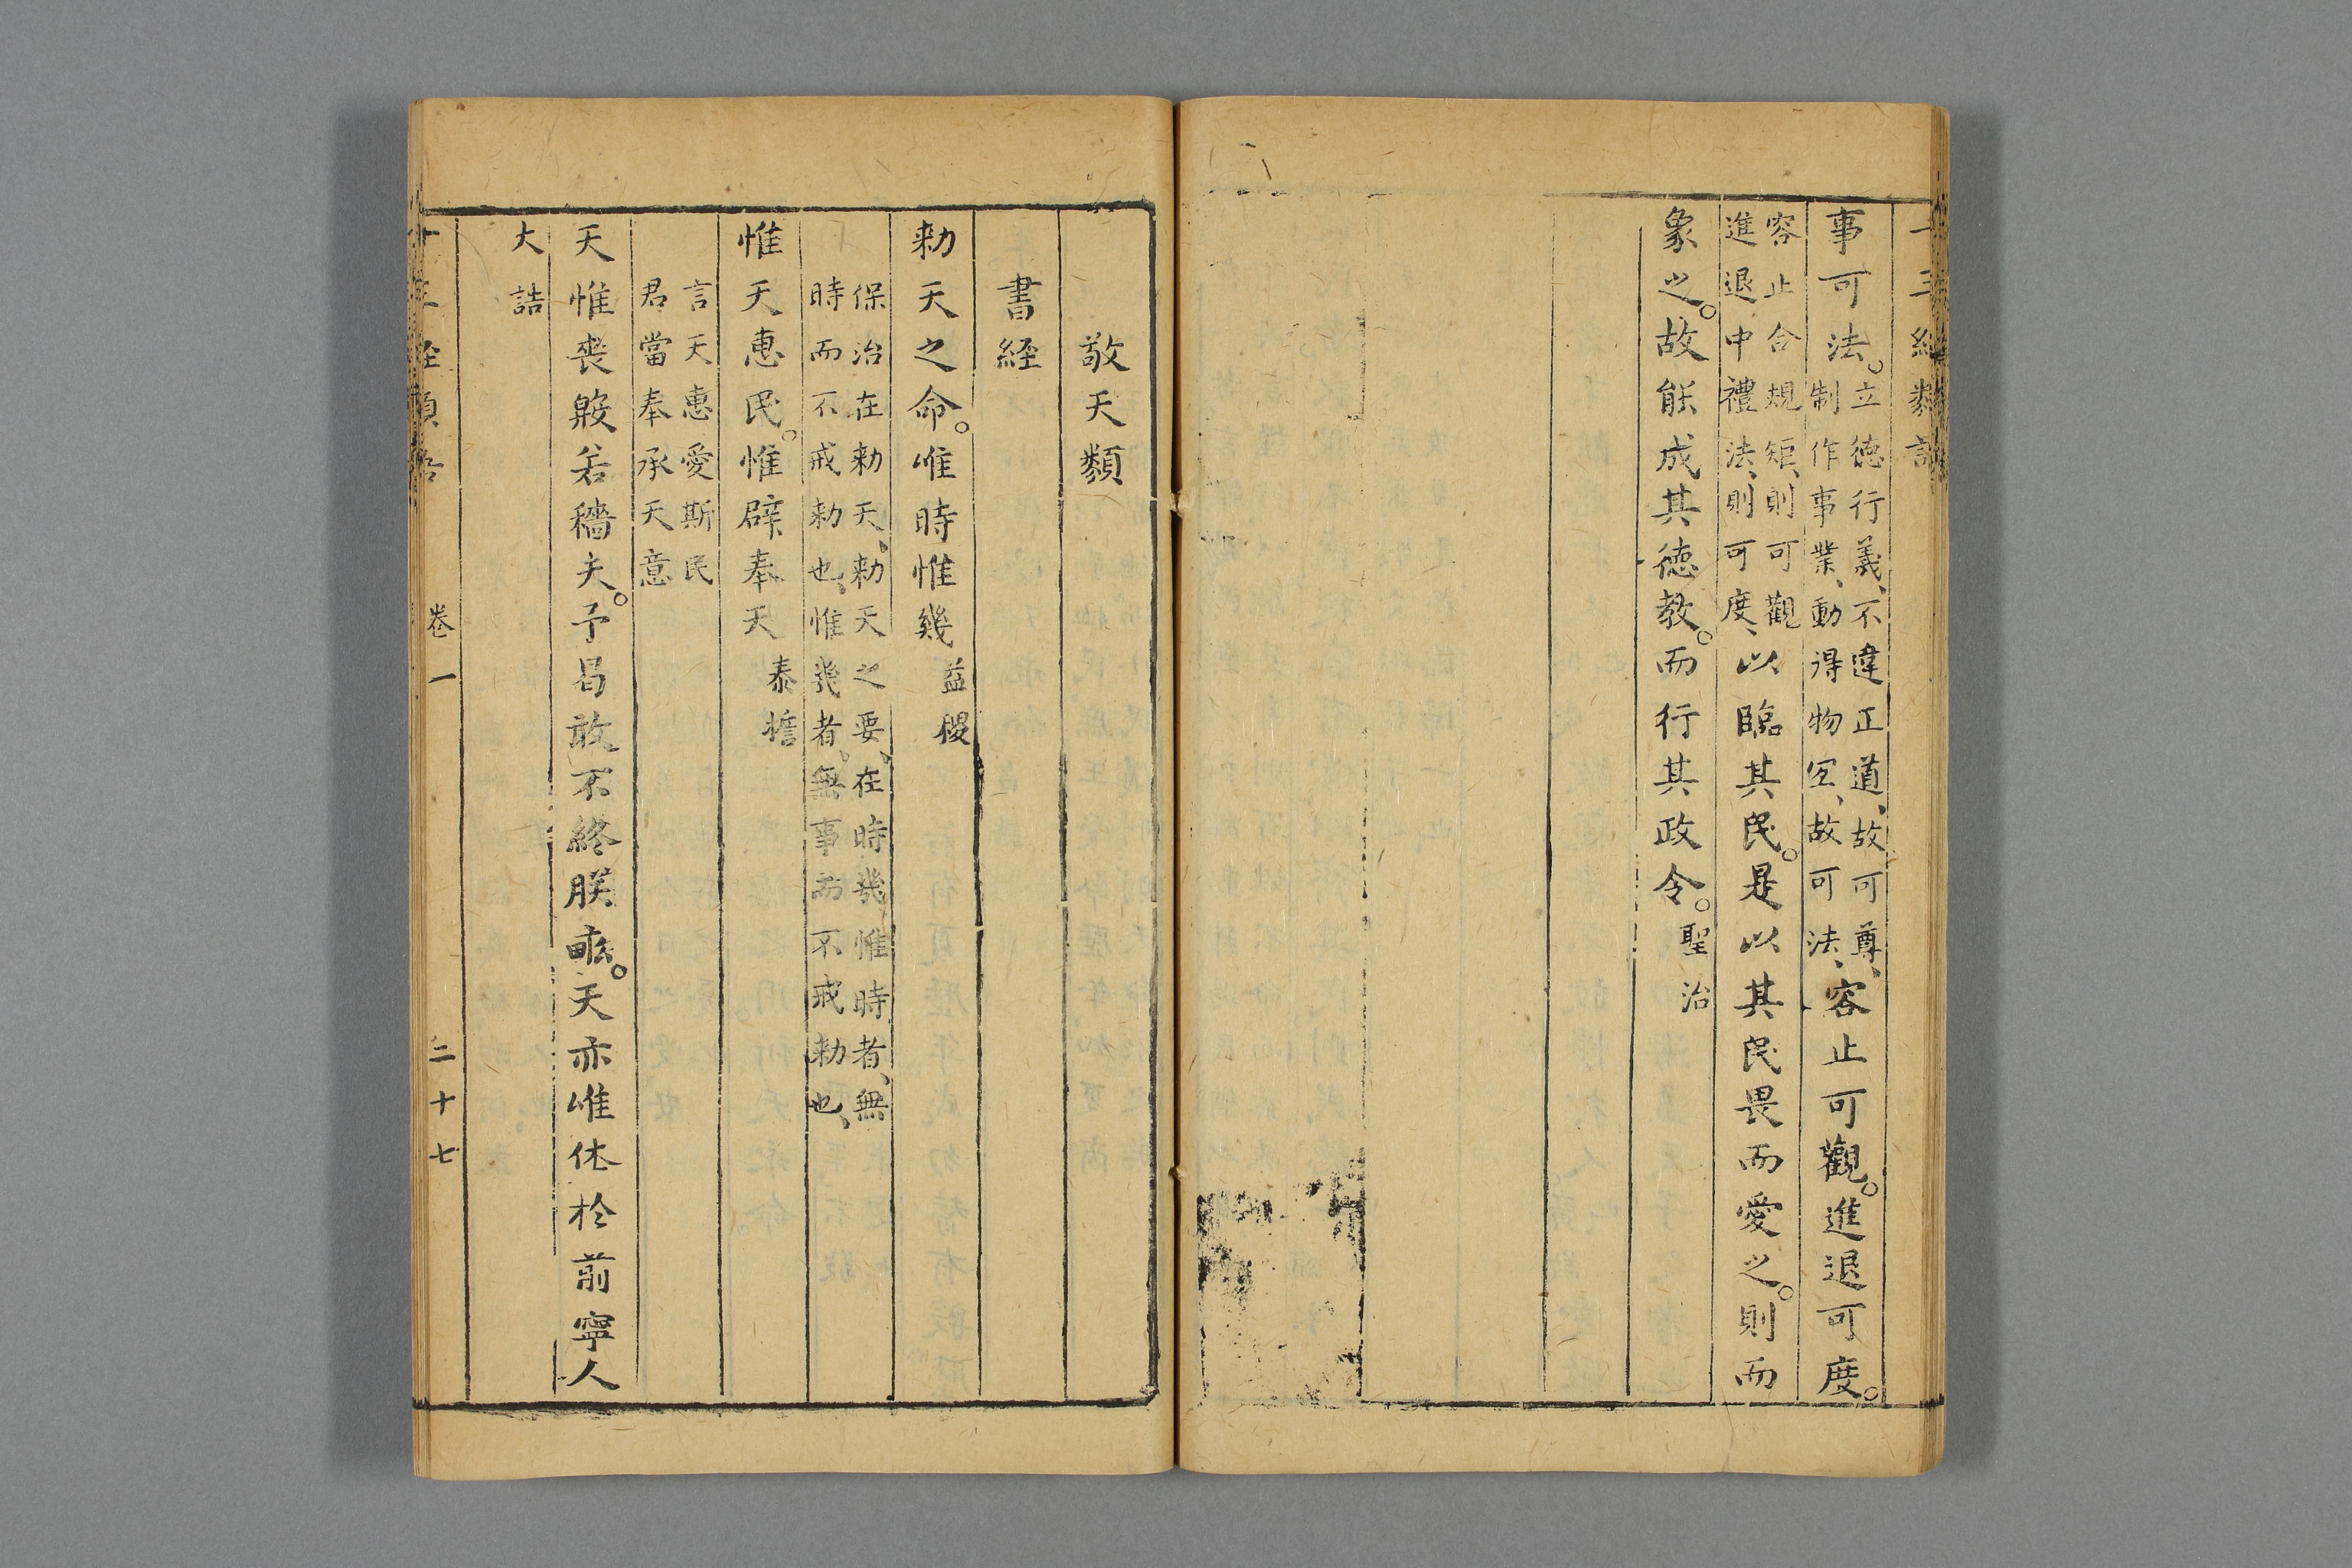 十三經類語
事可法。立德行義、不違正道、故可尊、
制作事業、動得物宜、故可法、容止可觀。進退可度。
容止合規矩、則可觀
進退中禮法、則可度、以臨其民。是以其民畏而愛之。則而
象之。故能成其德教。而行其政令。聖治
敬天類
書經
勑天之命。唯時惟幾 益稷
保治在勑天、勑天之要、在時幾惟時者、無
時而不戒勑也、惟幾者。無事而不戒勑也、
惟天惠民。惟辟奉天 泰誓
言天惠愛斯民
君當奉承天意
天惟喪殷若穡夫。予曷敢不終朕畝。天亦唯休於前寧人
大誥
十三經類語 卷一 二十七